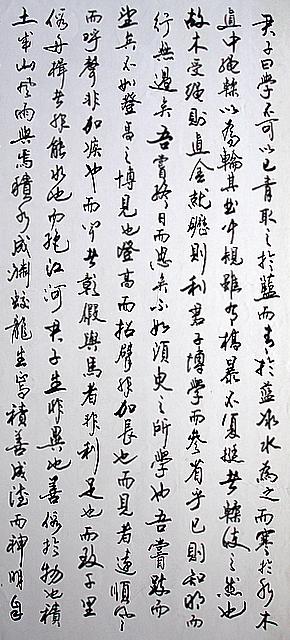 君子曰學不可以已青取之於藍而青於藍冰水為之而寒於水木
直中繩輮以為輪其曲中規雖有槁暴不復挺者輮使之然也
故木受繩則直金就礪則利君子博學而參省乎己則知明而
行無過矣吾嘗終日而思矣不如須臾之所學也吾嘗跂而
望矣不如登高之博見也登高而招臂非加長也而見者遠順風
而呼聲非加疾也而聞者彰假輿馬者非利足也而致千里
假舟楫者非能水也而絕江河君子生非異也善假於物也積
土成山風雨興焉積水成淵蛟龍生焉積善成德而神明自